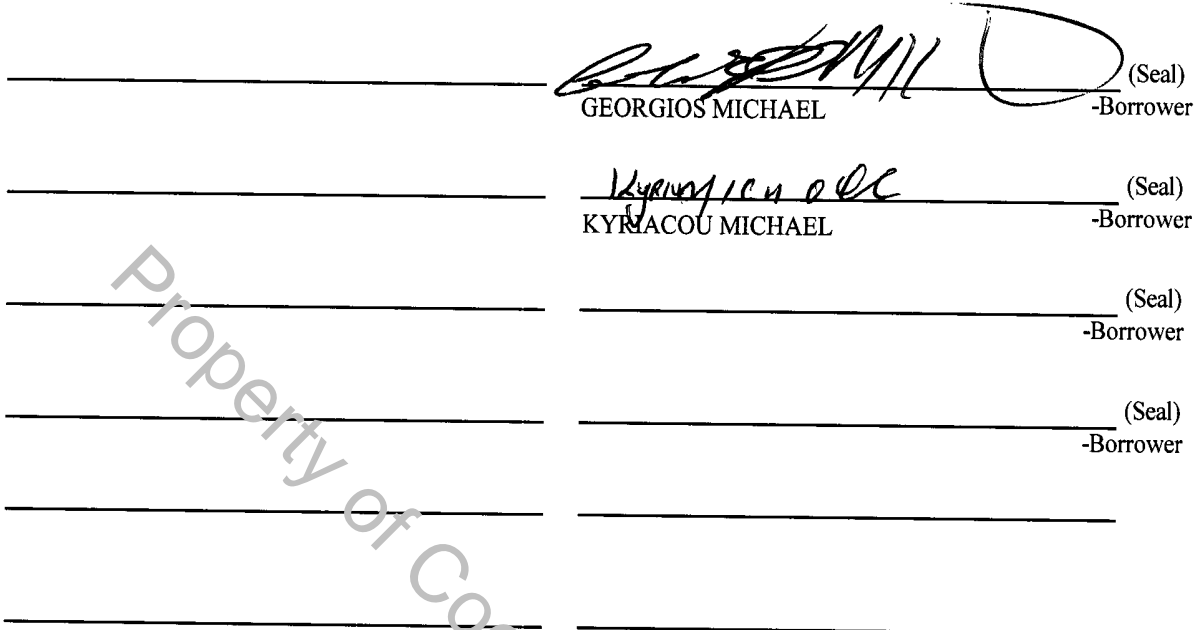 (Seal)
GEORGIOS MICHAEL -Borrower
(Seal)
KYRIACOU MICHAEL -Borrower
(Seal)
-Borrower
(Seal)
-Borrower
Property of Co